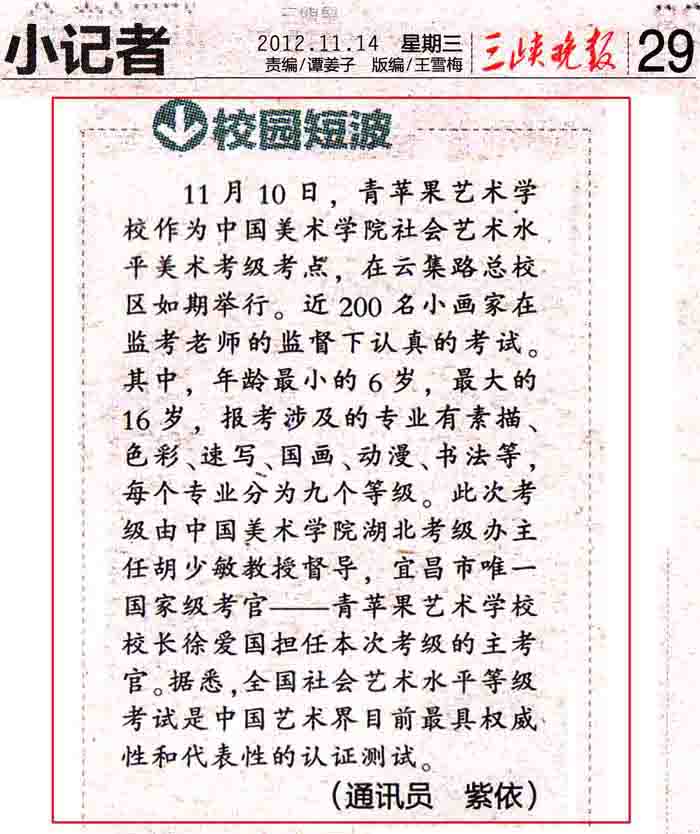 小记者
2012.11.14 星期三
责编/谭姜子 版编/王雪梅
三峡晚报
29
校园短波
11月10日，青苹果艺术学
校作为中国美术学院社会艺术水
平美术考级考点，在云集路总校
区如期举行。近200名小画家在
监考老师的监督下认真的考试。
其中，年龄最小的6岁，最大的
16岁，报考涉及的专业有素描、
色彩、速写、国画、动漫、书法等，
每个专业分为九个等级。此次考
级由中国美术学院湖北考级办主
任胡少敏教授督导，宜昌市唯一
国家级考官——青苹果艺术学校
校长徐爱国担任本次考级的主考
官。据悉，全国社会艺术水平等级
考试是中国艺术界目前最具权威
性和代表性的认证测试。
（通讯员 紫依）